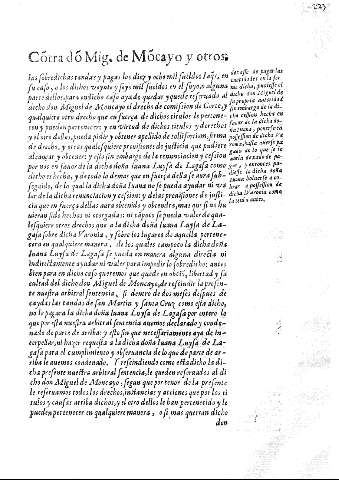 Cõtra dõ Mig. de Mõcayo y otros.
223
las sobredichas tandas y pagas los diez y ocho mil sueldos Iaqs. en
su caso, o los dichos veynte y seys mil sueldos en el suyo, o alguna
parte dellos, para en dicho caso ayude quedar y quede reseruado al
dicho don Miguel de Moncayo el drecho de comission de Corte, y
qualquiere otro drecho que en fuerça de dichos titulos le pertenez-
can y puedan pertenecer: y en virtud de dichos titulos y derechos
y el otro dellos, pueda pedir y obtener apellido de
drecho, y otras qualesquiere prouisiones de justicia que pudiere
alcançar y obtener: y esto sin embargo de la renunciacion y cession
por nos en fauor de la dicha doña Iuana Luysa de Lagasa como
dicho es hecha, y de todo lo demas que en fuerça della se aura sub-
seguido, de lo qual la dicha doña Iuana no se pueda ayudar ni va-
ler de la dicha renunciacion y cession: y delas prouisiones de justi-
cia que en fuerça dellas aura obtenido y obtendra, mas que si no hu
uieran sido hechas ni otorgadas: ni tãpoco se pueda valer de qua-
lesquiere otros drechos que a la dicha doña Iuana Luysa de La-
gasa sobre dicha Varonia, y sobre los lugares de aquella pertene-
cera en qualquiere manera, de los quales tampoco la dicha doña
Iuana Luysa de Lagasa se pueda en manera alguna directa ni
indirectamente ayudar ni valer para impedir lo sobredicho: antes
bien para en dicho caso queremos que quede en optiõ, libertad y fa
cultad del dicho don Miguel de Moncayo, de rescindir la presen-
te nuestra arbitral sentencia, si dentro de dos meses despues de
caydas las tandas de San Martin y santa Cruz como esta dicho,
no le pagara la dicha doña Iuana Luysa de Lagasa por entero lo
que por esta nuestra arbitral sentencia auemos declarado y conde-
nado de parte de arriba: y esto sin que necessariamente aya de in-
terpellar, ni hazer requesta a la dicha doña Iuana Luysa de La-
gasa para el cumplimiento y obseruancia de lo que de parte de ar-
riba le auemos condenado. Y rescindiendo como esta dicho la di-
cha presente nuestra arbitral sentencia, le queden reseruados al di
cho don Miguel de Moncayo, segun que por tenor de la presente
le reseruamos todos los drechos, instancias y acciones que por los ti
tulos y causas arriba dichos, y el otro dellos le han pertenecido y le
pueden pertenecer en qualquiere manera, o si mas querran dicho
don
der asse de pagar las
cantidades en la for-
ma dicha, pudiesse el
dicho don Miguel de
su propria autoridad
sin embargo de la di-
cha cession hecha en
fauor de la dicha do-
ña Iuana, ponerse en
possession de dicha Va
ronia, hasta tãto se pa
gasse de lo que se le
auria dexado de pa-
gar, y entonces pa-
gado, la dicha doña
Iuana boluiesse a co-
brar la possession de
dicha Varonia como
la tenia antes.